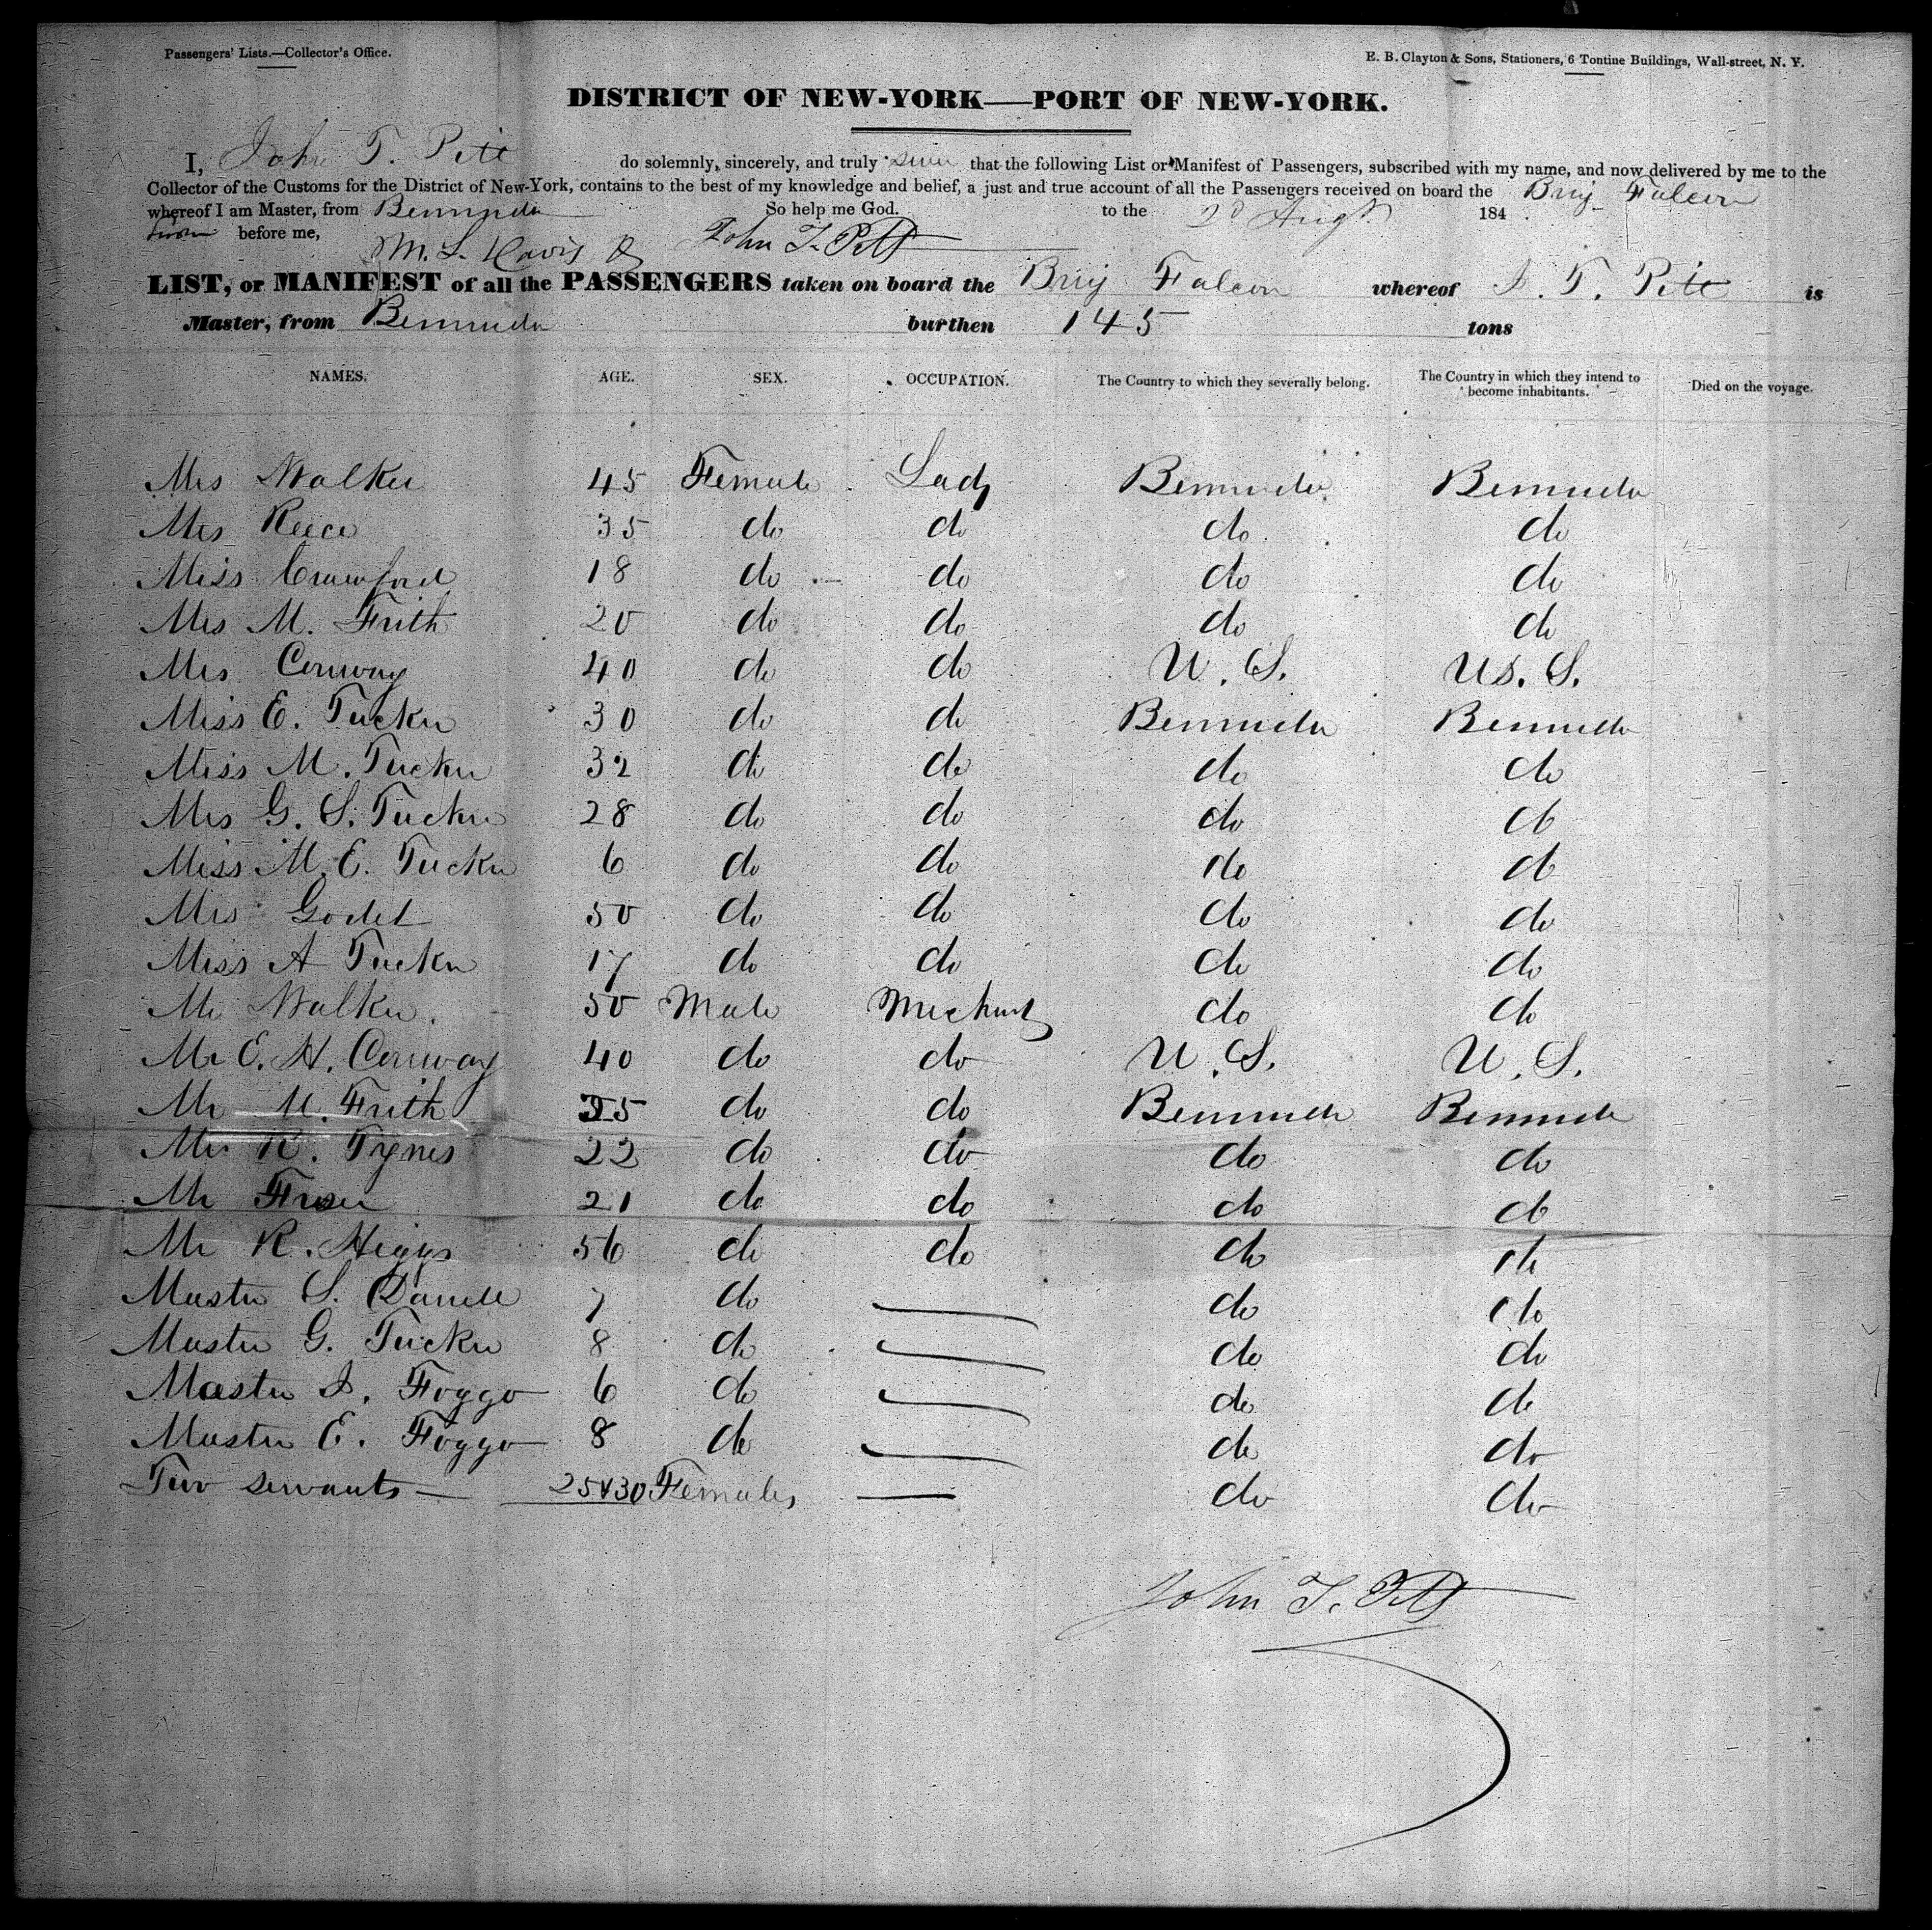 Passengers' Lists.—Collector's Office.
E. B. Clayton & Sons, Stationers, 6 Tontine Buildings, Wall-street, N. Y.
DISTRICT OF NEW-YORK—PORT OF NEW-YORK.
I, John T. Pitt do solemnly, sincerely, and truly swear that the following List or Manifest of Passengers, subscribed with my name, and now delivered by me to the
Collector of the Customs for the District of New-York, contains to the best of my knowledge and belief, a just and true account of all the Passengers received on board the Brig Falcon
whereof I am Master, from Bermuda So help me God. to the 2d Augt. 184
Sworn before me, M. L. Davis John T. Pitt
LIST, or MANIFEST of all the PASSENGERS taken on board the Brig Falcon whereof J. T. Pitt is
Master, from Bermuda burthen 145 tons
NAMES. AGE. SEX. OCCUPATION. The Country to which they severally belong. The Country in which they intend to become inhabitants. Died on the voyage.
Mrs Walker 45 Female Lady Bermuda Bermuda
Mrs Reece 35 do do do do
Miss Crawford 18 do do do do
Mrs M. Frith 20 do do do do
Mrs Conway 40 do do U. S. U S. S.
Miss E. Tucker 30 do do Bermuda Bermuda
Miss M. Tucker 32 do do do do
Mrs G. S. Tucker 28 do do do do
Miss M. E. Tucker 6 do do do do
Mrs Godet 50 do do do do
Miss A Tucker 17 do do do do
Mr Walker 50 Male Merchant do do
Mr E. H. Conway 40 do do U. S. U. S.
Mr M. Frith 35 do do Bermuda Bermuda
Mr R. Tynes 22 do do do do
Mr 21 do do do do
Mr R. Higgs 56 do do do do
Master S. Darrell 7 do do do
Master G. Tucker 8 do do do
Master J. Foggo 6 do do do
Master E. Foggo 8 do do do
Two servants — 25 & 30 Females — do do
John T. Pitt